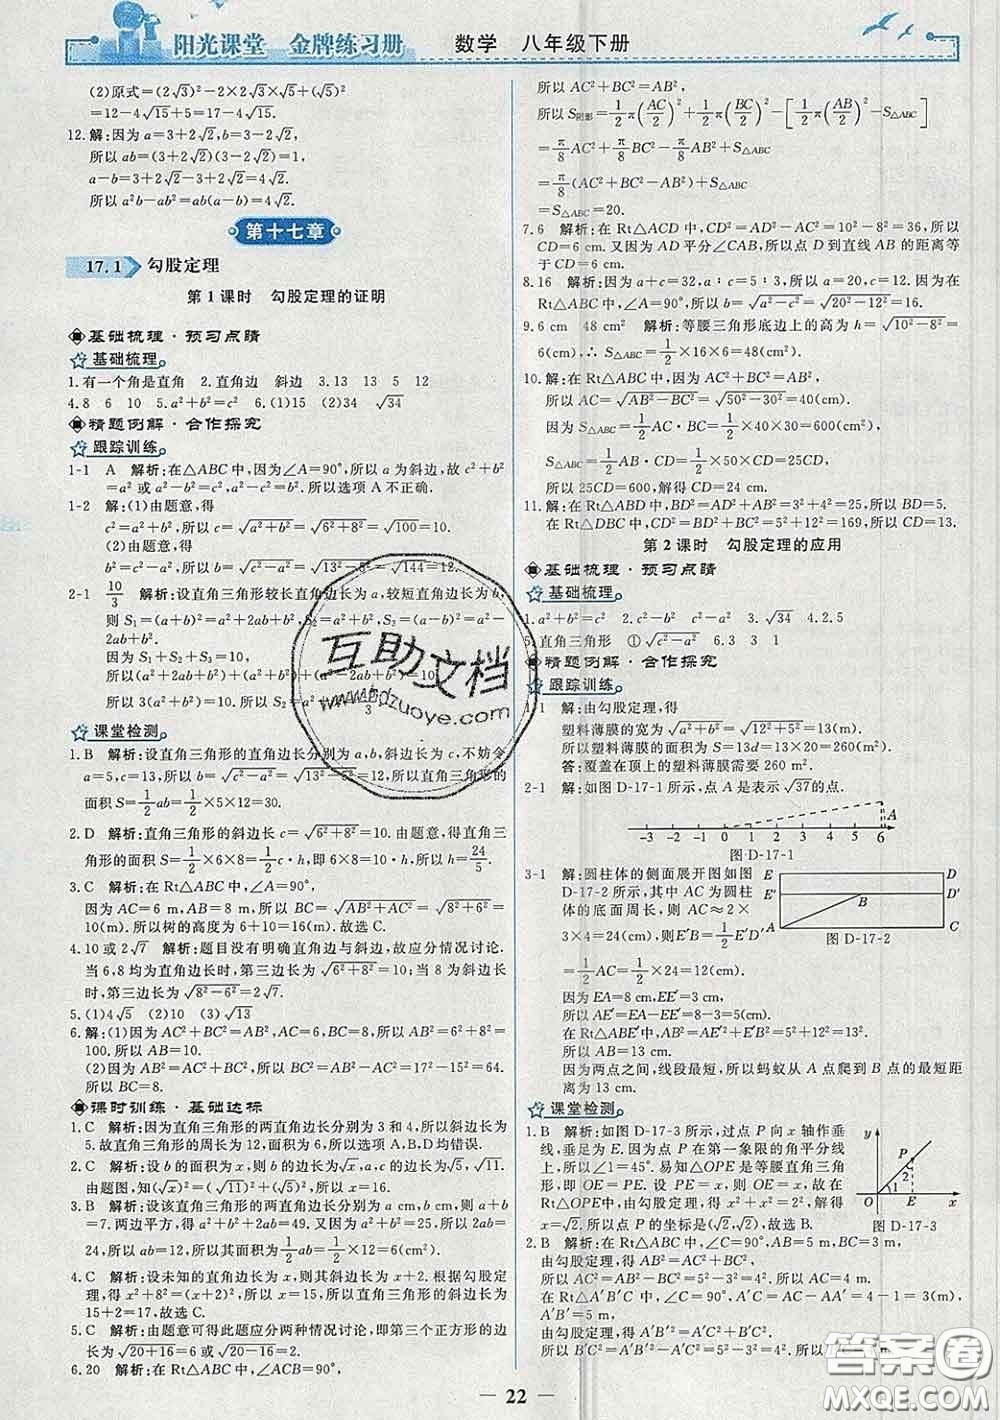 阳光课堂 金牌练习册 数学 八年级下册
(2)原式=(2√3)²-2×2√3×√5+(√5)²
=12-4√15+5=17-4√15.
12.解:因为a=3+2√2,b=3-2√2,
所以ab=(3+2√2)(3-2√2)=1,
a-b=3+2√2-3+2√2=4√2.
所以a²b-ab²=ab(a-b)=4√2.
第十七章
17.1 勾股定理
第1课时 勾股定理的证明
基础梳理·预习点睛
基础梳理
1.有一个角是直角 2.直角边 斜边 3.13 13 5 12
4.8 6 10 5.a²+b²=c² 6.(1)15 (2)34 √34
精题例解·合作探究
跟踪训练
1-1 A 解析:在△ABC中,因为∠A=90°,所以a为斜边,故c²+b²
=a²或a²-b²=c²,所以选项A不正确.
1-2 解:(1)由题意,得
c²=a²+b²,所以c=√(a²+b²)=√(6²+8²)=√100=10.
(2)由题意,得
b²=c²-a²,所以b=√(c²-a²)=√(13²-5²)=√144=12.
2-1 10/3 解析:设直角三角形较长直角边长为a,较短直角边长为b,
则S₁=(a+b)²=a²+2ab+b²,S₂=a²+b²,S₃=(a-b)²=a²-
2ab+b².
因为S₁+S₂+S₃=10,
所以(a²+2ab+b²)+(a²+b²)+(a²-2ab+b²)=10,
所以3(a²+b²)=10,所以S₂=a²+b²=10/3.
课堂检测
1.B 解析:设直角三角形的直角边长分别为a,b,斜边长为c,不妨令
a=5,c=13,所以b=√(c²-a²)=√(13²-5²)=12,所以直角三角形的
面积S=1/2ab=1/2×5×12=30.
2.D 解析:直角三角形的斜边长c=√(6²+8²)=10.由题意,得直角三
角形的面积S=1/2×6×8=1/2c·h,即6×8=10×h,所以h=24/5.
3.C 解析:在Rt△ABC中,∠A=90°,
因为AB=6 m,AC=8 m,所以BC=√(AB²+AC²)=√(6²+8²)=
10(m).所以树的高度为6+10=16(m).故选C.
4.10或2√7 解析:题目没有明确直角边与斜边,故应分情况讨论.
当6,8均为直角边长时,第三边长为√(6²+8²)=10;当8为斜边长
时,第三边长为√(8²-6²)=2√7.
5.(1)4√5 (2)10 (3)√13
6.解:(1)因为AC²+BC²=AB²,AC=6,BC=8,所以AB²=6²+8²=
100.所以AB=10.
(2)因为AC²+BC²=AB²,所以BC²=AB²-AC²=17²-15²=64.
所以BC=8.
课时训练·基础达标
1.C 解析:因为直角三角形的两直角边长分别为3和4,所以斜边长为
5.故直角三角形的周长为12,面积为6,所以选项A,B,D均错误.
2.C 解析:设b的面积为x,则a,b,c的边长分别为√5,√x,√11.
由题图,知(√x)²=(√11)²+(√5)²=16.所以b的面积为16.
3.B 解析:设该直角三角形的两直角边长分别为a cm,b cm,则a+b
=7.两边平方,得a²+2ab+b²=49.因为a²+b²=25,所以2ab=
24,所以ab=12,所以其面积为1/2ab=1/2×12=6(cm²).
4.C 解析:设未知的直角边长为x,则斜边长为x+2.根据勾股定
理,得x²+8²=(x+2)²,所以x=15,所以直角三角形的斜边长为
15+2=17,故选C.
5.C 解析:由题意可得此题应分两种情况讨论,即第三个正方形的边长
为√(20+16)=6或√(20-16)=2.
6.20 解析:在Rt△ABC中,∠ACB=90°,
所以AC²+BC²=AB²,
所以S阴影=1/2π(AC/2)²+1/2π(BC/2)²-[1/2π(AB/2)²-S△ABC]
=π/8AC²+π/8BC²-π/8AB²+S△ABC
=π/8(AC²+BC²-AB²)+S△ABC
=S△ABC=20.
7.6 解析:在Rt△ACD中,CD²=AD²-AC²=10²-8²=36,所以
CD=6 cm.又因为AD平分∠CAB,所以点D到直线AB的距离等
于CD=6 cm.
8.16 解析:因为a+c=32,a∶c=5∶3,所以a=20,c=12.在
Rt△ABC中,∠A=90°,所以b=√(a²-c²)=√(20²-12²)=16.
9.6 cm 48 cm² 解析:等腰三角形底边上的高为h=√(10²-8²)=
6(cm),∴S△ABC=1/2×16×6=48(cm²).
10.解:在Rt△ABC中,因为AC²+BC²=AB²,
所以AC=√(AB²-BC²)=√(50²-30²)=40(cm).
因为S△ABC=1/2AC·BC=1/2×40×30=600(cm²),
S△ABC=1/2AB·CD=1/2×50×CD=25CD,
所以25CD=600,解得CD=24 cm.
11.解:在Rt△ABD中,BD²=AD²+AB²=3²+4²=25,所以BD=5.
在Rt△DBC中,CD²=BD²+BC²=5²+12²=169,所以CD=13.
第2课时 勾股定理的应用
基础梳理·预习点睛
基础梳理
1.a²+b²=c² 2.c²-b² c²-a² 3.√34 4.2.5
5.直角三角形 ①√(c²-a²) 6.3 3 1
精题例解·合作探究
跟踪训练
1-1 解:由勾股定理,得
塑料薄膜的宽为√(a²+b²)=√(12²+5²)=13(m).
所以塑料薄膜的面积为S=13d=13×20=260(m²).
答:覆盖在顶上的塑料薄膜需要260 m².
2-1 解:如图D-17-1所示,点A是表示√37的点.
-3 -2 -1 0 1 2 3 4 5 6 A
图D-17-1
3-1 解:圆柱体的侧面展开图如图
D-17-2所示,其中AC为圆柱
体的底面周长,则AC≈2×
3×4=24(cm),则E′B=1/2E′D′
=1/2AC=1/2×24=12(cm).
E D
E′ B D′
A C
图D-17-2
因为EA=8 cm,EE′=3 cm,
所以AE′=EA-EE′=8-3=5(cm).
在Rt△ABE′中,AB²=AE′²+E′B²=5²+12²=13².
所以AB=13(cm).
因为两点之间,线段最短,所以蚂蚁从A点爬到B点的最短路
径为13 cm.
课堂检测
1.B 解析:如图D-17-3,过点P向x轴作垂
线,垂足为E.因为点P在第一象限的角平分线
上,所以∠1=45°.易知△OPE是等腰直角三角
形,即OE=PE.设PE=x,则OE=x.在
Rt△OPE中,由勾股定理,得x²+x²=2².解得
x=√2.所以点P的坐标是(√2,√2),故选B.
y P 2 1 O E x
图D-17-3
2.B 解析:在Rt△ABC中,∠C=90°,AB=5 m,BC=3 m,
由勾股定理,得AB²=AC²+BC²,
所以AC=4 m.
在Rt△A′B′C中,A′C=AC-AA′=4-1=3(m),
A′B′=5 m,
由勾股定理,得A′B′²=A′C²+B′C²,
所以B′C=4 m,所以BB′=B′C-BC=1 m.故选B.
22
互助文档
www.hdzuoye.com
答案圈
MXQE.COM